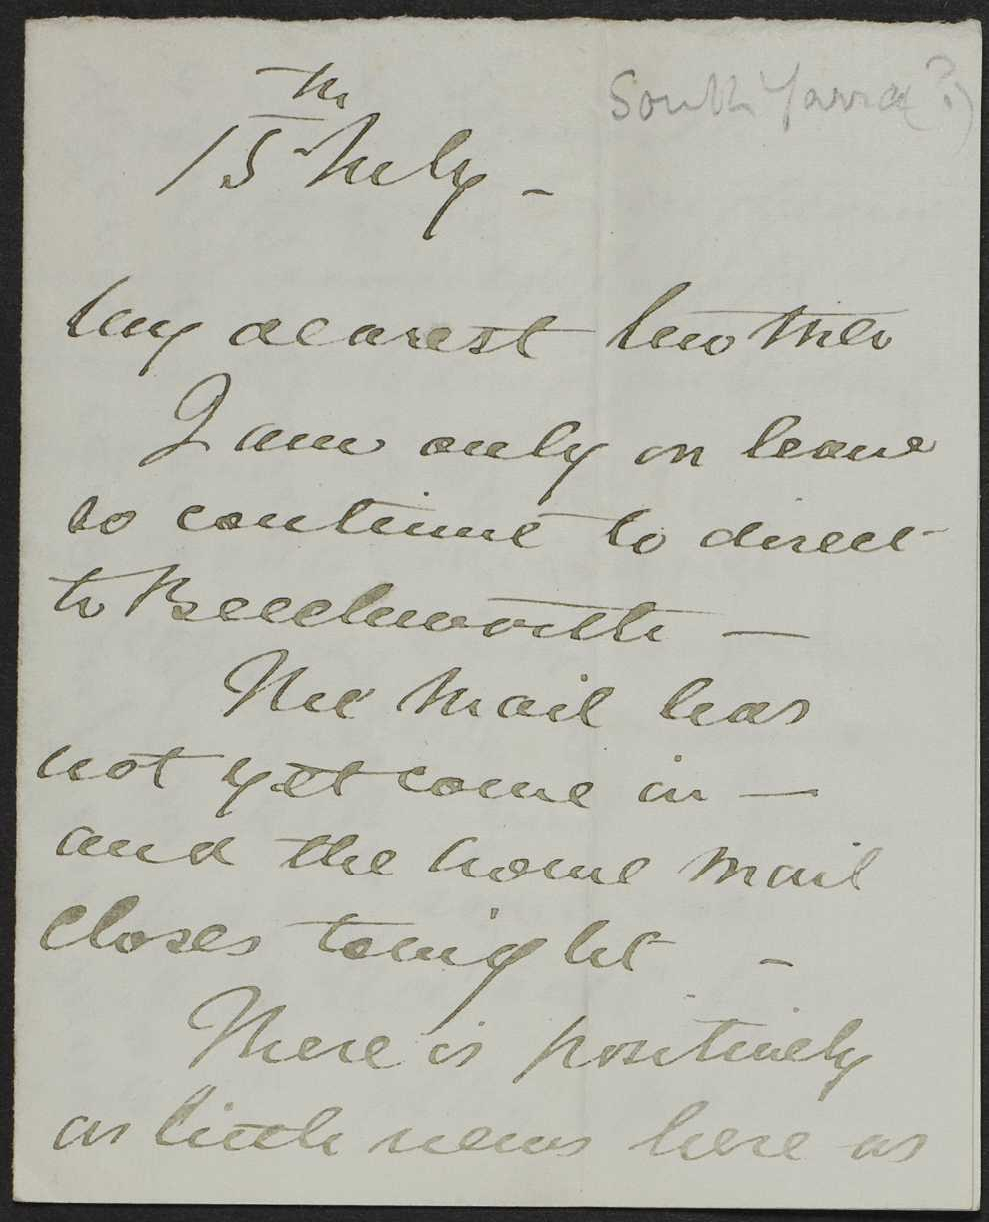 South Yarra (?)
15th July -
My dearest Mother
I am only on leave
so continue to direct
to Beechworth —
The Mail has
not yet come in —
and the home Mail
closes tonight -
There is positively
as little news here as